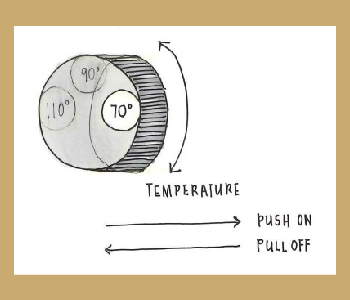 90°
110°
70°
TEMPERATURE
PUSH ON
PULL OFF